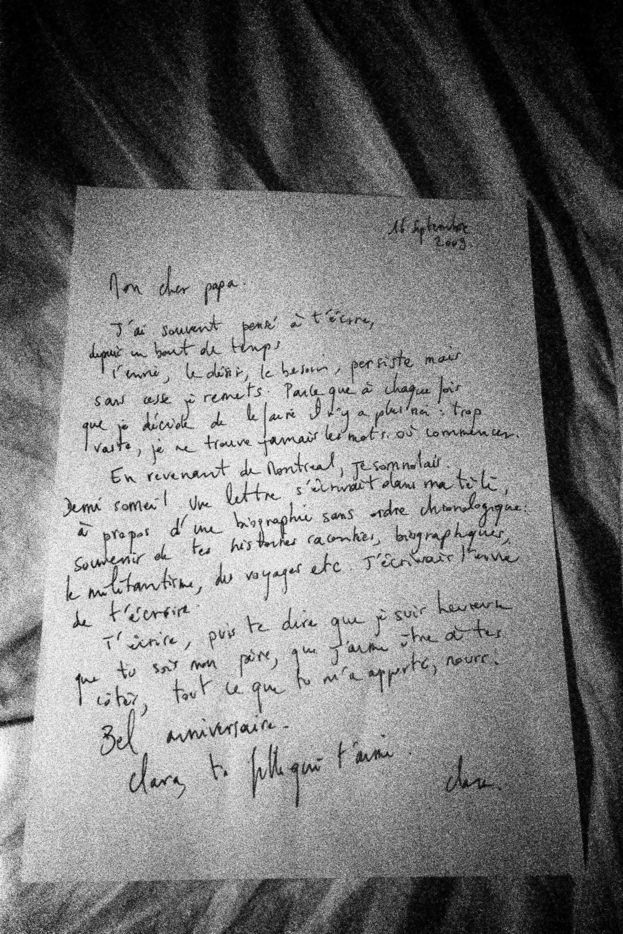 16 Septembre
2009
Mon cher papa.
J'ai souvent pensé à t'écrire,
depuis un bout de temps
l'envie, le désir, le besoin, persiste mais
sans cesse je remets. Parce que à chaque fois
que je décide de le faire il n'y a plus rien : trop
vaste, je ne trouve jamais les mots. où commencer.
En revenant de Montreal, je somnolais.
Demi someil une lettre s'écrivait dans ma tête,
à propos d'une biographie sans ordre chronologique.
souvenir de tes histoires racontées, biographiques,
le militantisme, des voyages etc. J'écrivais l'envie
de t'écrire.
T'écrire, puis te dire que je suis heureuse
que tu sois mon père, que j'aime être à tes
côtés, tout ce que tu m'a apporté, nourri.
Bel anniversaire.
Clara, ta fille qui t'aime.
Clara.